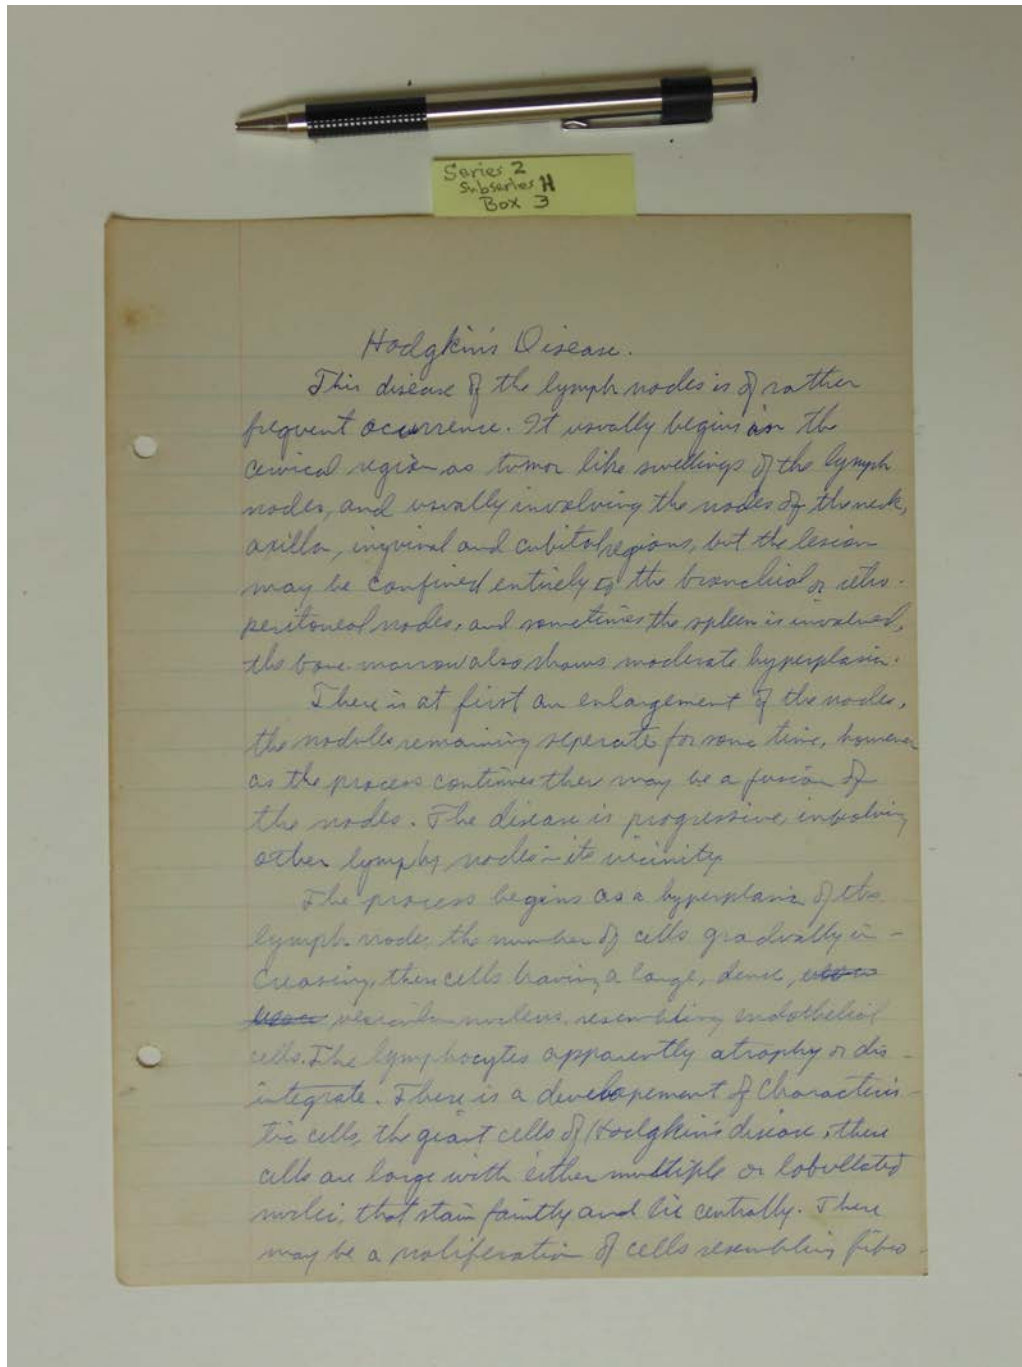 Series 2
Subseries H
Box 3
Hodgkin's Disease.
This disease of the lymph nodes is of rather
frequent ocurrence. It usually begins in the
cervical region as tumor like swellings of the lymph
nodes, and usually involving the nodes of the neck,
axilla, inguinal and cubital regions, but the lesion
may be confined entirely to the bronchial or retro-
peritoneal nodes, and sometimes the spleen is involved,
the bone marrow also shows moderate hyperplasia.
There is at first an enlargement of the nodes,
the nodules remaining seperate for some time, however
as the process continues ther may be a fusion of
the nodes. The disease is progressive, involving
other lymph nodes in its vicinity
The process begins as a hyperplasia of the
lymph nodes, the number of cells gradually in-
creasing, these cells having a large, dense,
vesicular nucleus, resembling endothelial
cells. The lymphocytes apparently atrophy or dis-
integrate. There is a developement of characteris-
tic cells, the giant cells of Hodgkin's disease, these
cells are large with either multiple or lobullated
nuclei, that stain faintly and lie centrally. There
may be a proliferation of cells resembling fibro-